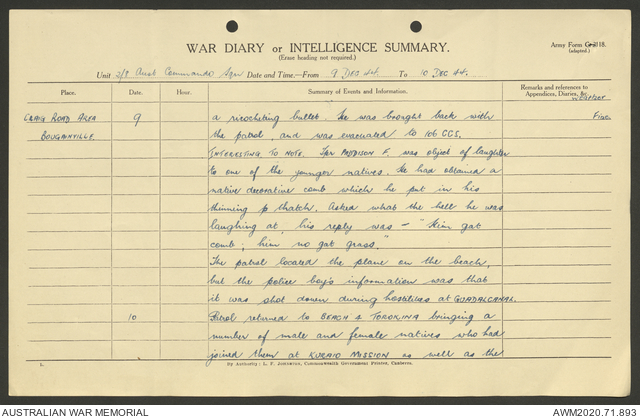 WAR DIARY or INTELLIGENCE SUMMARY.
(Erase heading not required.)
Army Form C.2118.
(adapted.)
Unit 2/8 Aust Commando Sqn Date and Time.—From 9 DEC 44. To 10 DEC 44.
Place. Date. Hour. Summary of Events and Information. Remarks and references to Appendices, Diaries, &c.
WEATHER
CRAIG ROAD AREA 9 a ricocheting bullet. He was brought back with Fine
BOUGAINVILLE. the patrol, and was evacuated to 106 CCS.
INTERESTING TO NOTE. Tpr MADDISON F. was object of laughter
to one of the younger natives. He had obtained a
native decorative comb which he put in his
thinning thatch. Asked what the hell he was
laughing at, his reply was – "Him got
comb; him no got grass."
The patrol located the plane on the beach,
but the police boy's information was that
it was shot down during hostilities at GUADALCANAL.
10 Patrol returned to BEACH 4 TOROKINA bringing a
number of male and female natives who had
joined them at KURAIO MISSION as well as the
1.
By Authority: L. F. Johnston, Commonwealth Government Printer, Canberra.
AUSTRALIAN WAR MEMORIAL
AWM2020.71.893